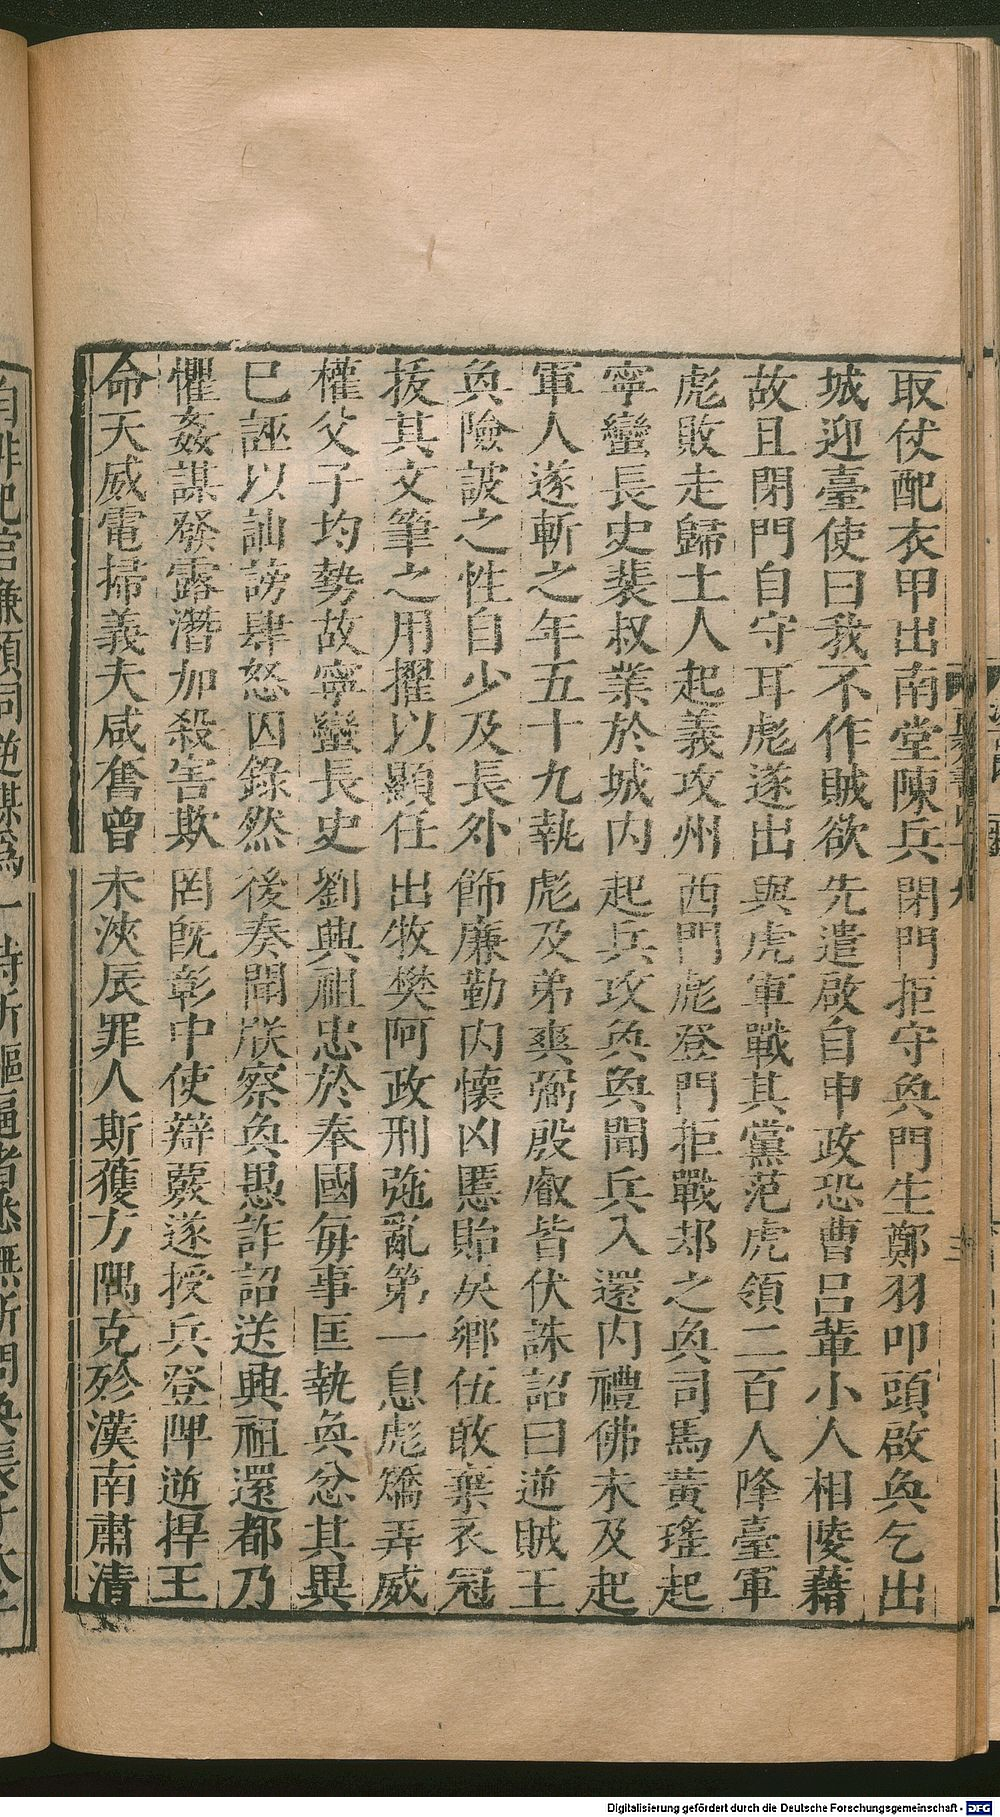 取仗配衣甲出南堂陳兵閉門拒守奐門生鄭羽叩頭啟奐乞出
城迎臺使曰我不作賊欲先遣啟自申政恐曹呂輩小人相陵藉
故且閉門自守耳彪遂出與虎軍戰其黨范虎領二百人降臺軍
彪敗走歸土人起義攻州西門彪登門拒戰却之奐司馬黃瑤起
寧蠻長史裴叔業於城内起兵攻奐奐聞兵入還内禮佛未及起
軍人遂斬之年五十九執彪及弟爽弼殷叡皆伏誅詔曰逆賊王
奐險詖之性自少及長外飾廉勤内懷凶慝貽戾鄉伍敢棄衣冠
拔其文筆之用擢以顯任出牧樊阿政刑弛亂第一息彪矯弄威
權父子均勢故寧蠻長史劉興祖忠於奉國每事匡執奐忿其異
巳誣以訕謗肆怒囚錄然後奏聞朕察奐愚詐詔送興祖還都乃
懼姦謀發露潛加殺害欺罔旣彰中使辯覈遂授兵登陴逆捍王
命天威電掃義夫咸奮曾未浹辰罪人斯獲方隅克殄漢南肅清
Digitalisierung gefördert durch die Deutsche Forschungsgemeinschaft - DFG